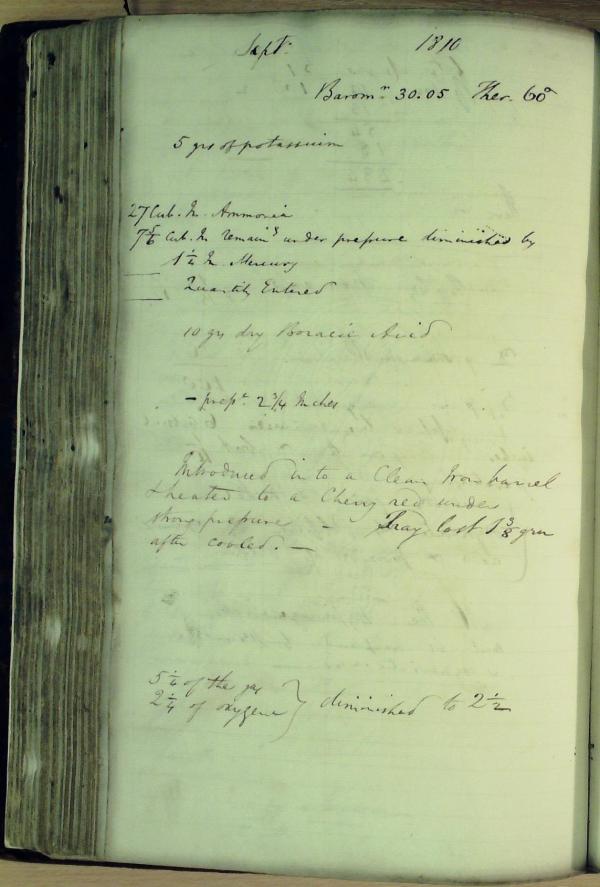 Sept.r 1810
Barom.r 30.05 Ther. 60°
5 grs of potassium
27 Cub. In. Ammonia
7 5/6 Cub. In. remain.g under pressure diminished by
1 1/4 In. Mercury
Quantity Entered
10 grs dry Boracic Acid
- press.r 2 3/4 Inches
Introduced into a Clean Iron barrel
& heated to a Cherry red under
strong pressure - Tray lost 1 3/8 grn
after cooled. —
5 1/4 of the gas
2 1/4 of oxygene } diminished to 2 1/2